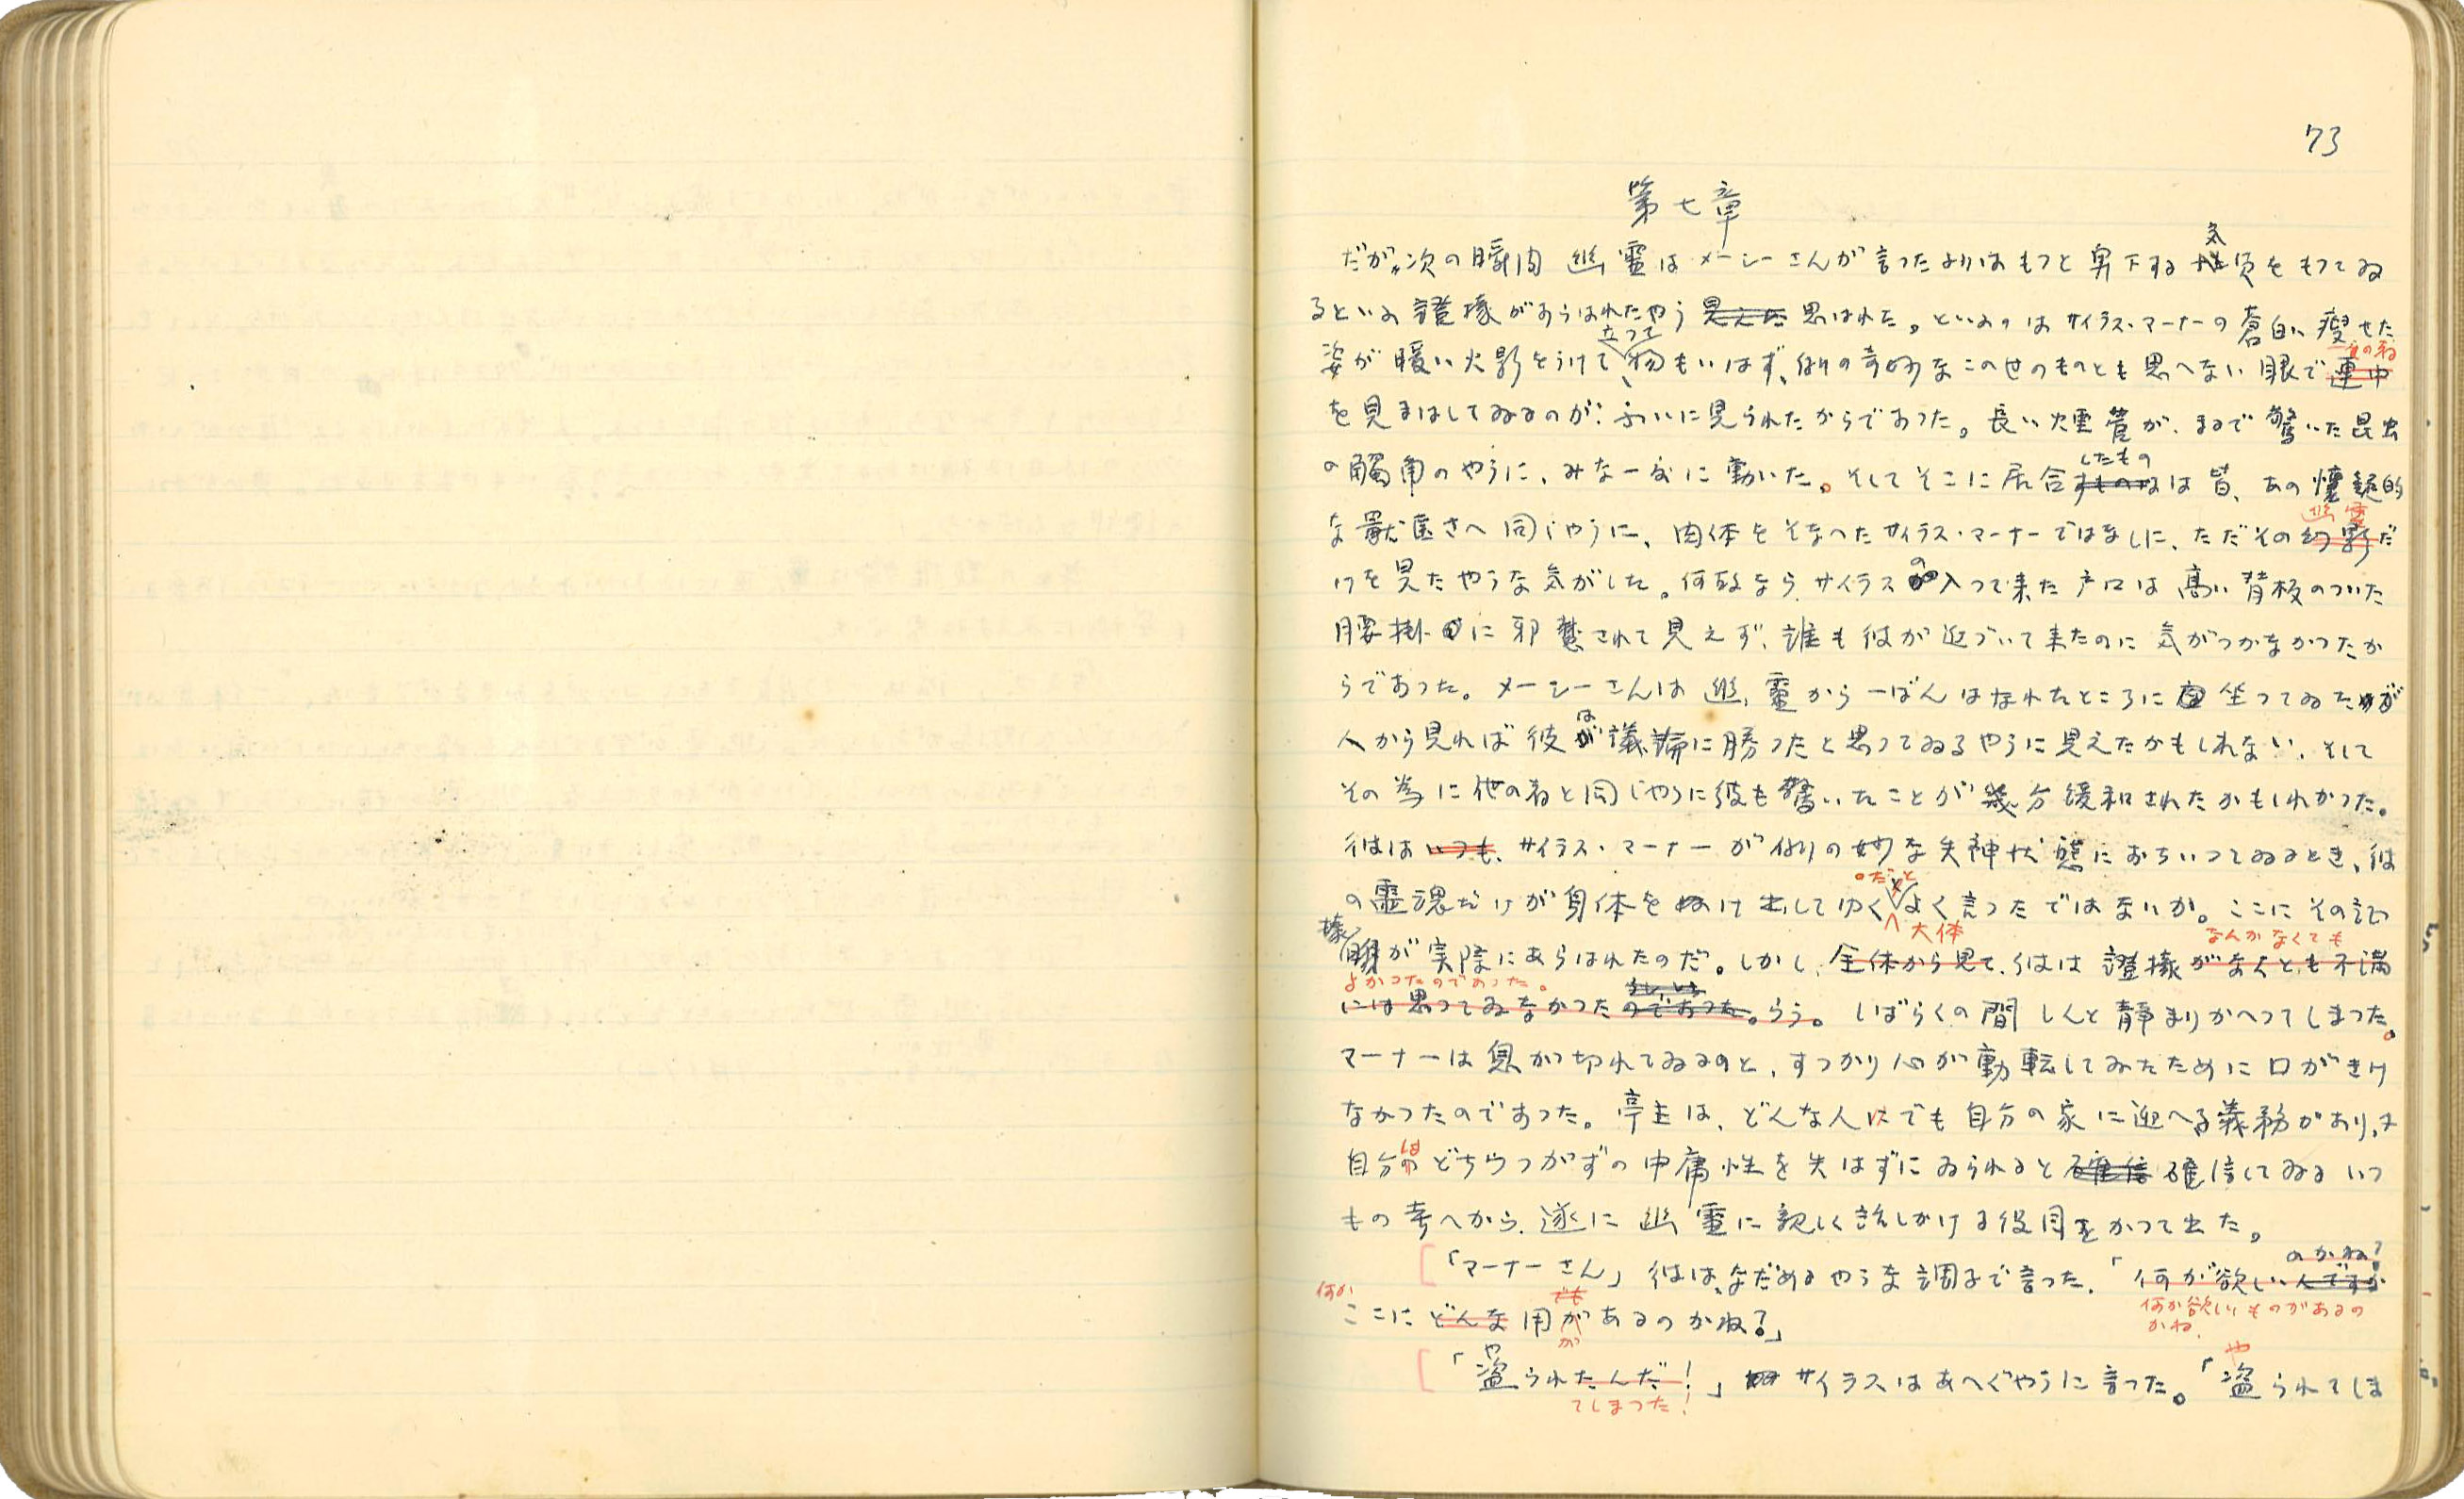 73
第七章
だが次の瞬間 幽霊はメーシーさんが言つたよりはもつと卑下する気質をもつてゐ
るといふ證據があらはれたやう見えた思はれた。といふのはサイラス・マーナーの蒼白い瘦せた
立つて
一座の者
姿が暖い火影をうけて、物もいはず、例の奇妙なこのせのものとも思へない眼で連中
を見まはしてゐるのが、ふいに見られたからであつた。長い煙管が、まるで驚いた昆虫
したもの
の觸角のやうに、みな一度に動いた。そしてそこに居合すものは皆、あの懐疑的
幽霊
な獣医さへ同じやうに、肉体をそなへたサイラス・マーナーではなしに、ただその幻影だ
けを見たやうな気がした。何故ならサイラスの入つて来た戸口は高い背板のついた
腰掛に邪魔されて見えず、誰も彼が近づいて来たのに気がつかなかつたか
らであつた。メーシーさんは幽霊から一ばんはなれたところに坐つてゐたが
は
人から見れば彼が議論に勝つたと思つてゐるやうに見えたかもしれない、そして
その為に他の者と同じやうに彼も驚いたことが幾分緩和されたかもしれかつた。
彼はいつも、サイラス・マーナーが例の妙な失神状態におちいつてゐるとき、彼
のだと
の霊魂だけが身体をぬけ出してゆくよく言つたではないか。ここにその証
據
大体
なんかなくても
が実際にあらはれたのだ。しかし、全体から見て、彼は證據がなくとも不満
よかつたのであつた。
には思つてゐなかつたのであつた。らう。しばらくの間しんと静まりかへつてしまつた。
マーナーは息が切れてゐるのと、すつかり心が動転してゐたために口がきけ
なかつたのであつた。亭主は、どんな人にでも自分の家に迎へる義務があり、又
は
自分のどちらつかずの中庸性を失はずにゐられると確信確信してゐるいつ
もの考へから、遂に幽霊に親しく話しかける役目をかつて出た。
のかね?
「マーナーさん」彼は、なだめるやうな調子で言つた.「何が欲しいんですか
何か欲しいものがあるの
かね.
何か
でも
ここにどんな用があるのかね?」
が
や
や
「盗られたんだ!」サイラスはあへぐやうに言つた。「盗られてしま
てしまつた!